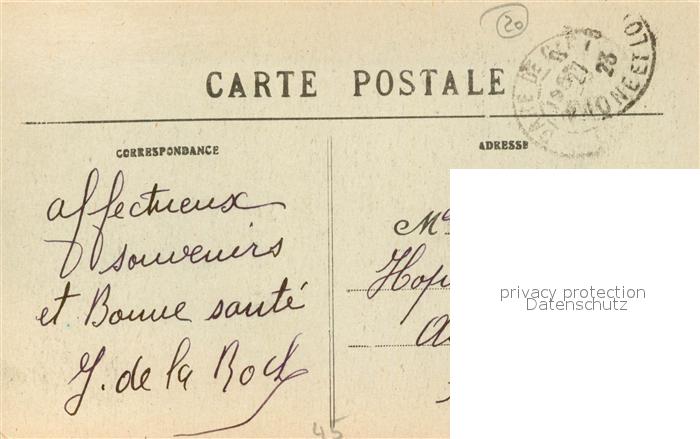 20
CARTE POSTALE
23
CORRESPONDANCE
ADRESSE
affectueux
souvenirs
et Bonne santé
J. de la Roch
privacy protection
Datenschutz
45